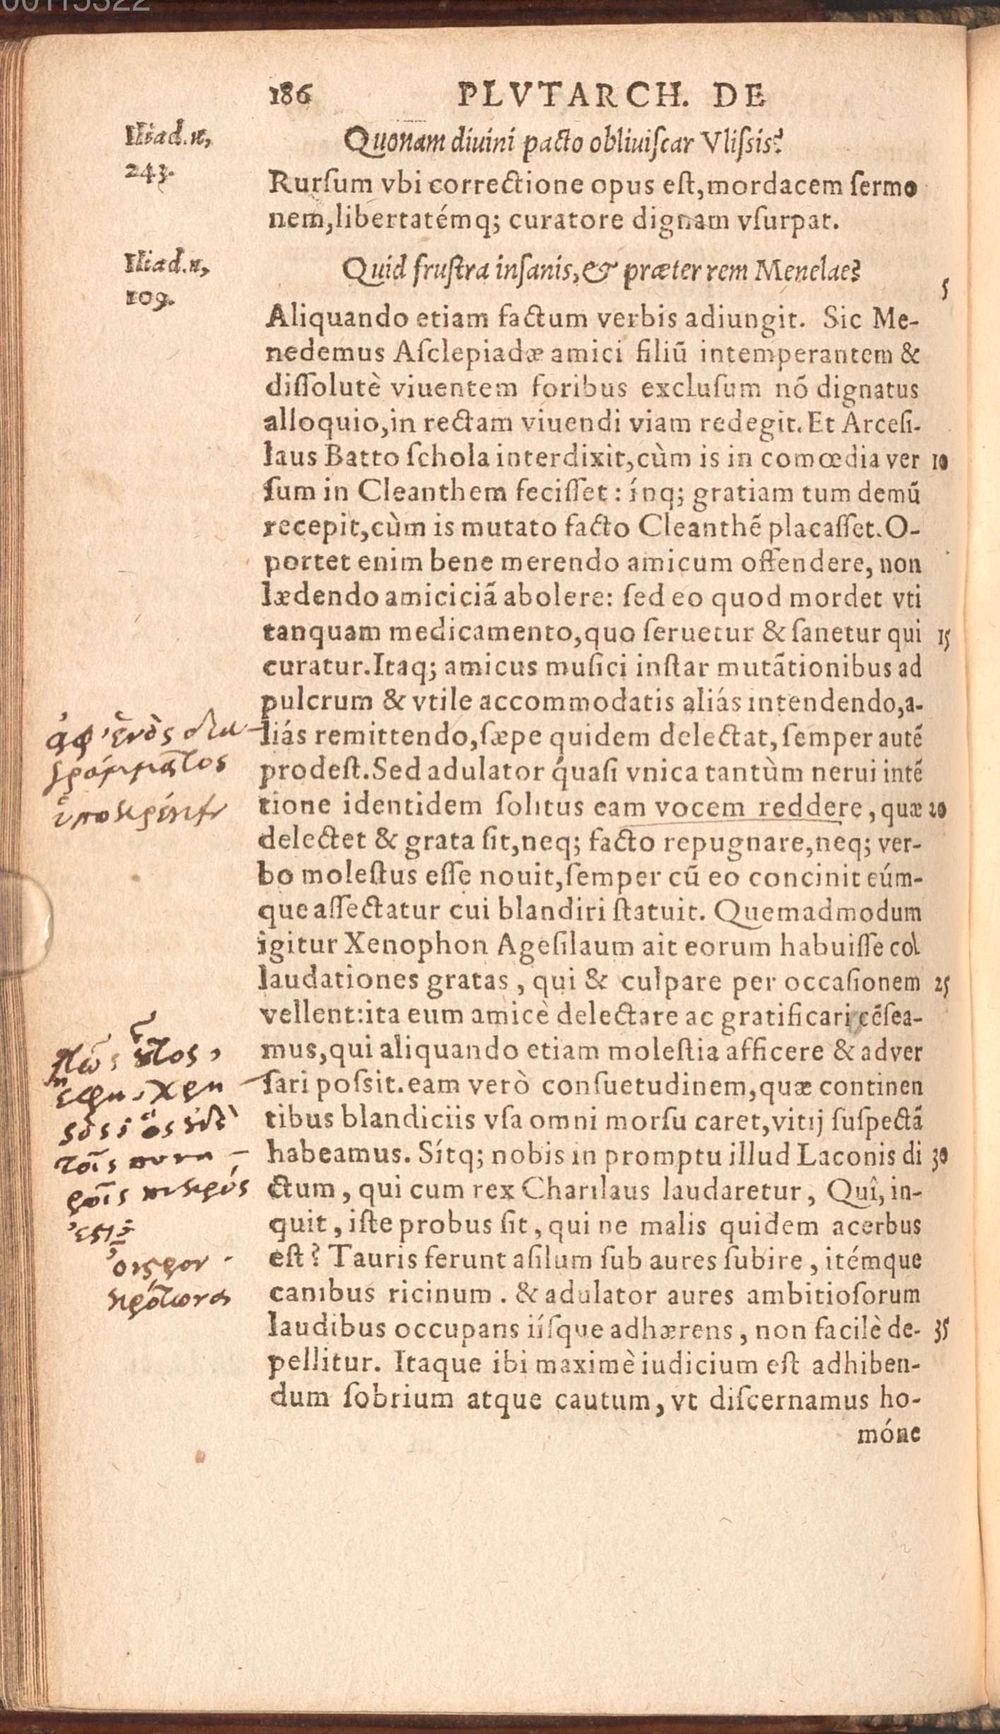 00115322
186 PLVTARCH. DE
Iliad.κ,
243.
Quonam diuini pacto obliuiſcar Vliſsis?
Rurſum vbi correctione opus eſt,mordacem ſermo
nem,libertatémq; curatore dignam vſurpat.
Iliad.η,
109.
Quid fruſtra inſanis,& præter rem Menelae?
5
Aliquando etiam factum verbis adiungit. Sic Me-
nedemus Aſclepiadæ amici filiũ intemperantem &
diſſolutè viuentem foribus excluſum nõ dignatus
alloquio,in rectam viuendi viam redegit. Et Arceſi-
laus Batto ſchola interdixit,cùm is in comœdia ver 10
ſum in Cleanthem feciſſet: ínq; gratiam tum demũ
recepit,cùm is mutato facto Cleanthẽ placaſſet. O-
portet enim bene merendo amicum offendere, non
lædendo amiciciã abolere: ſed eo quod mordet vti
tanquam medicamento,quo ſeruetur & ſanetur qui 15
curatur. Itaq; amicus muſici inſtar mutãtionibus ad
pulcrum & vtile accommodatis aliás intendendo,a-
liás remittendo,ſæpe quidem delectat, ſemper autẽ
prodeſt. Sed adulator quaſi vnica tantùm nerui intẽ
tione identidem ſolitus eam vocem reddere, quæ 20
delectet & grata ſit,neq; facto repugnare,neq; ver-
bo moleſtus eſſe nouit,ſemper cũ eo concinit eúm-
que aſſectatur cui blandiri ſtatuit. Quemadmodum
igitur Xenophon Ageſilaum ait eorum habuiſſe col
laudationes gratas, qui & culpare per occaſionem 25
vellent:ita eum amicè delectare ac gratificari cẽſea-
mus,qui aliquando etiam moleſtia afficere & adver
ſari poſsit. eam verò conſuetudinem,quæ continen
tibus blandiciis vſa omni morſu caret,vitij ſuſpectã
habeamus. Sítq; nobis in promptu illud Laconis di 30
ctum, qui cum rex Charilaus laudaretur, Quî, in-
quit, iſte probus ſit, qui ne malis quidem acerbus
eſt? Tauris ferunt aſilum ſub aures ſubire, itémque
canibus ricinum. & adulator aures ambitioſorum
laudibus occupans iíſque adhærens, non facilè de- 35
pellitur. Itaque ibi maximè iudicium eſt adhiben-
dum ſobrium atque cautum, vt diſcernamus ho-
móne
ἀφ' ἑνὸς δια
γράμματος
πῶς οὗτος,
ἔφη, χρη
τοῖς πονη-
ροῖς πικρός
ἐστι;
οἶστρον
κρότωνα